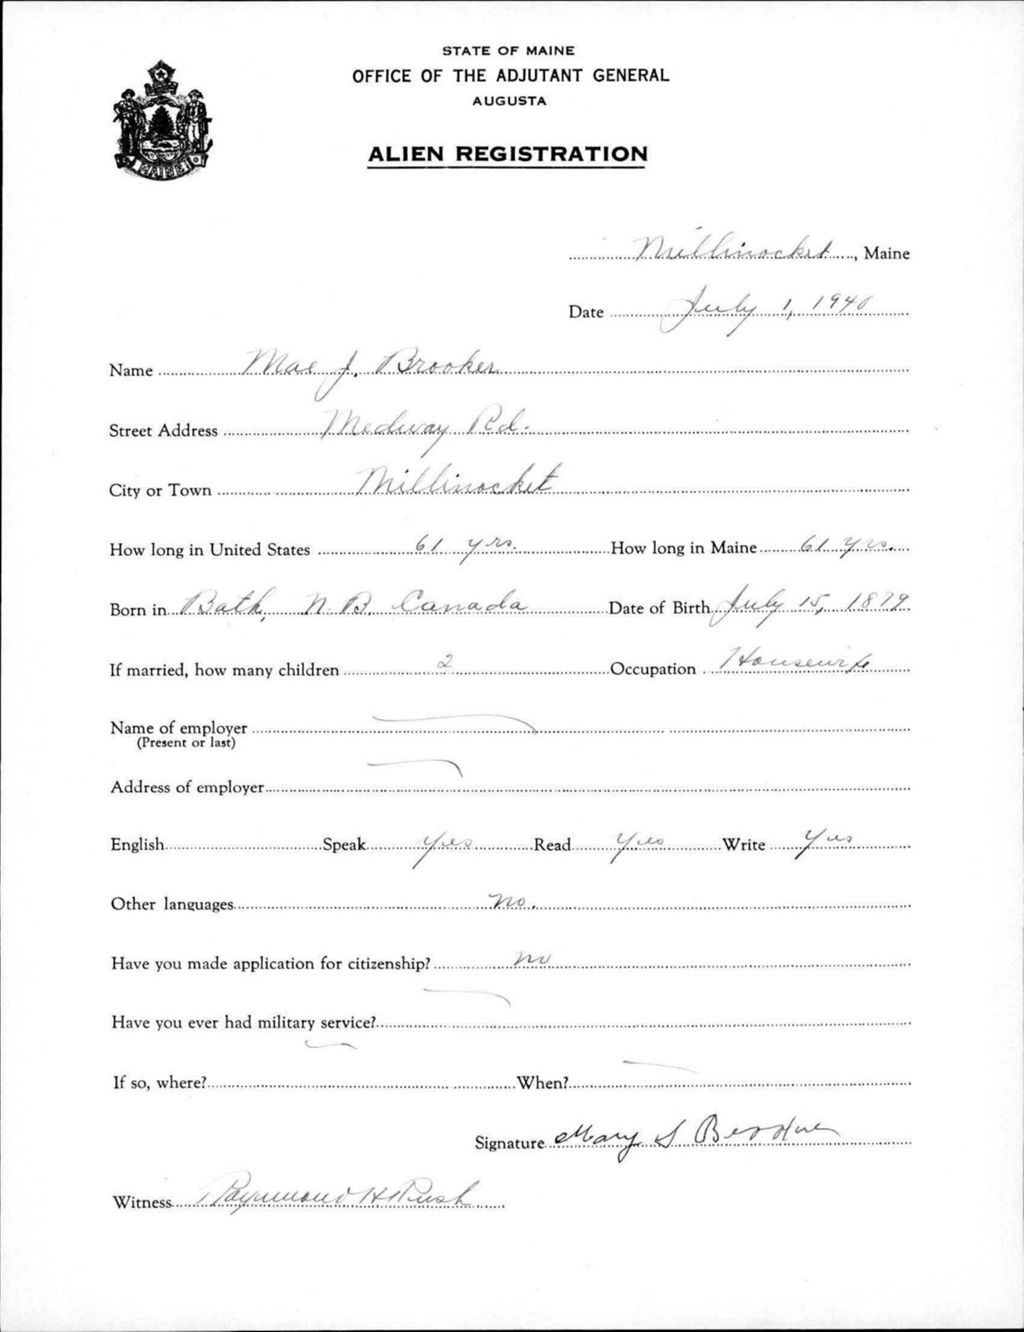 STATE OF MAINE
OFFICE OF THE ADJUTANT GENERAL
AUGUSTA
ALIEN REGISTRATION
MAINE
Millinocket, Maine
Date July 1, 1940
Name Mae J. Brooker
Street Address Medway Rd.
City or Town Millinocket
How long in United States 61 yrs. How long in Maine 61 yrs.
Born in Bath, N.B. Canada Date of Birth July 15, 1879
If married, how many children 2 Occupation Housewife
Name of employer
(Present or last)
Address of employer
English Speak Yes Read Yes Write Yes
Other languages No.
Have you made application for citizenship? No
Have you ever had military service?
If so, where? When?
Signature Mary J Brooker
Witness Raymond H Rush